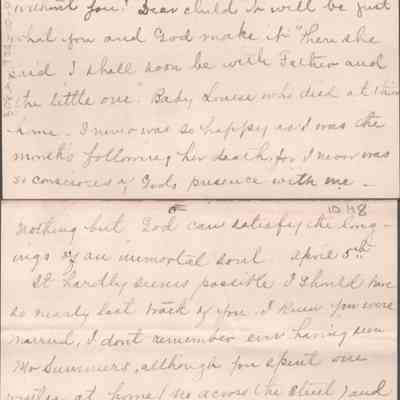 without you? Dear child it will be just
what you and God make it" Then she
said I shall soon be with Father and
the little one" Baby Louise who died at
home. I never was so happy as I was the
months following her death, for I never was
so conscious of Gods presence with me -
1048
Nothing but God can satisfy the long-
ings of an immortal soul April 5th
It hardly seems possible I should have
so nearly lost track of you. I knew you were
married, I dont remember ever having seen
Mr Summers, although you spent one
at home (no across the street) and